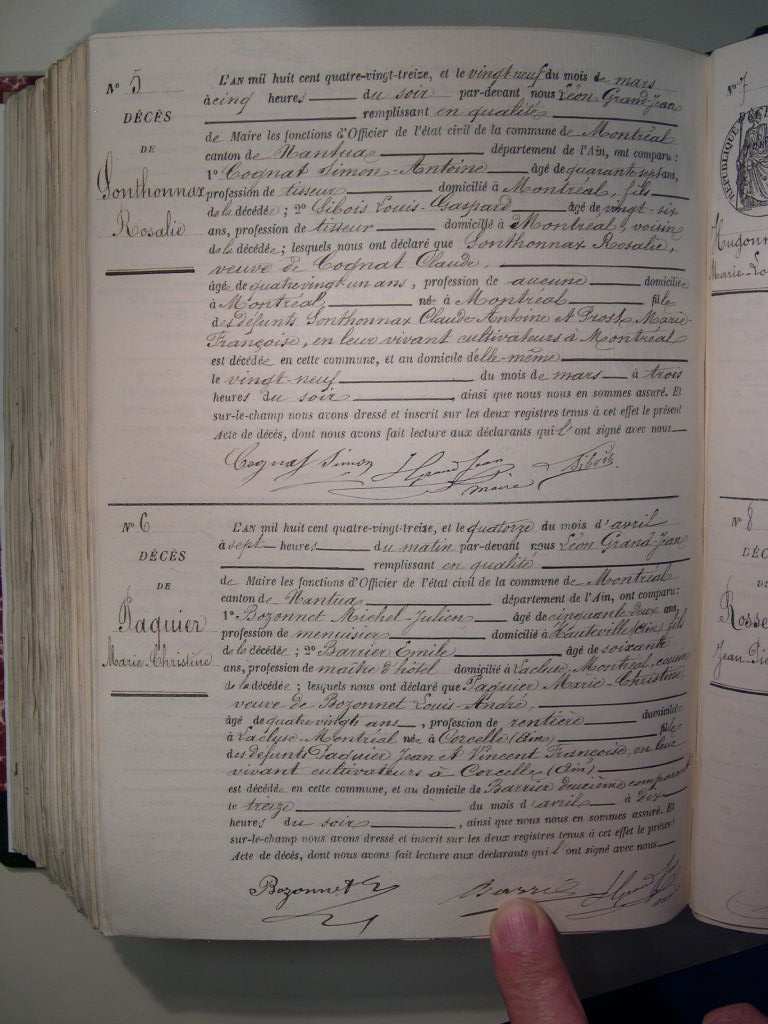 N° 5
DÉCÈS
DE
Sonthonnax
Rosalie
L'AN mil huit cent quatre-vingt-treize, et le vingt neuf du mois de mars
à cinq heures du soir par-devant nous Léon Grand-Jean
remplissant en qualité
de Maire les fonctions d'Officier de l'état civil de la commune de Montréal
canton de Nantua département de l'Ain, ont comparu :
1° Cognat Simon-Antoine âgé de quarante sept ans,
profession de tisseur domicilié à Montréal, fils
de la décédée ; 2° Sibois Louis-Gaspard âgé de vingt-six
ans, profession de tisseur domicilié à Montréal, voisin
de la décédée ; lesquels nous ont déclaré que Sonthonnax Rosalie,
veuve de Cognat Claude,
âgé de quatre vingt un ans, profession de aucune domicilié
à Montréal, né à Montréal fille
de défunts Sonthonnax Claude-Antoine et Prost Marie
Françoise, en leur vivant cultivateurs à Montréal
est décédée en cette commune, et au domicile d'elle-même
le vingt-neuf du mois de mars à trois
heures du soir, ainsi que nous nous en sommes assuré. Et
sur-le-champ nous avons dressé et inscrit sur les deux registres tenus à cet effet le présent
Acte de décès, dont nous avons fait lecture aux déclarants qui l'ont signé avec nous
Cognat Simon LGrand Jean Sibois
maire
N° 6
DÉCÈS
DE
Paquier
Marie-Christine
L'AN mil huit cent quatre-vingt-treize, et le quatorze du mois d'avril
à sept heures du matin par-devant nous Léon Grand-Jean
remplissant en qualité
de Maire les fonctions d'Officier de l'état civil de la commune de Montréal
canton de Nantua département de l'Ain, ont comparu :
1° Bozonnet Michel-Julien âgé de cinquante deux ans,
profession de menuisier domicilié à Hauteville (Ain) fils
de la décédée ; 2° Barrier Emile âgé de soixante
ans, profession de maître d'hôtel domicilié à Lacluse Montréal, cousin
de la décédée ; lesquels nous ont déclaré que Paquier Marie-Christine
veuve de Bozonnet Louis-André,
âgé de quatre vingts ans, profession de rentière domicilié
à Laclyse-Montréal né à Corcelle (Ain) fille
des défunts Paquier Jean et Vincent Françoise, en leur
vivant cultivateurs à Corcelle (Ain)
est décédée en cette commune, et au domicile de Barrier deuxième comparant
le treize du mois d'avril à dix
heures du soir, ainsi que nous nous en sommes assuré. Et
sur-le-champ nous avons dressé et inscrit sur les deux registres tenus à cet effet le présent
Acte de décès, dont nous avons fait lecture aux déclarants qui l'ont signé avec nous
Bozonnet Barrié LGrand Jean
N° 7
RÉPUBLIQUE
Hugonn
Marie-Lo
N° 8
DÉC
Rosse
Jean-Pie